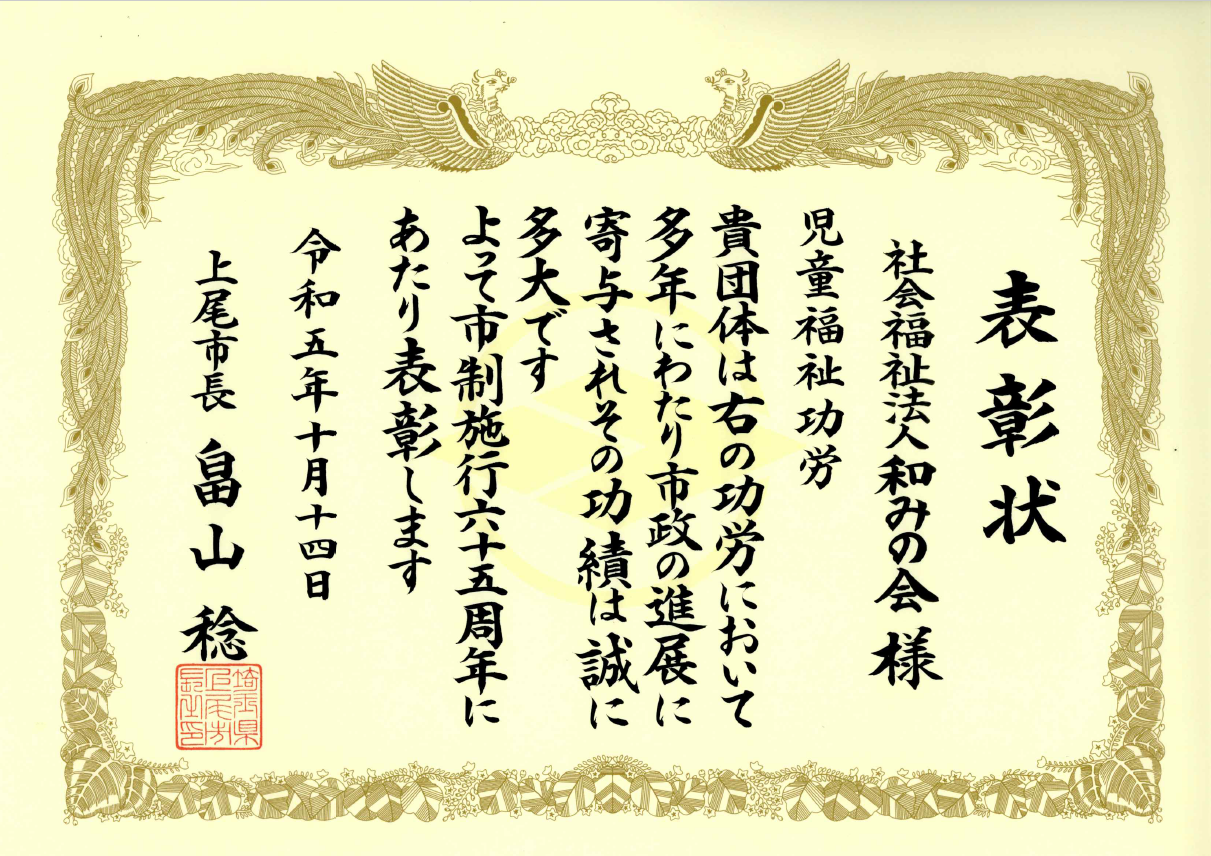 表彰状
社会福祉法人和みの会様
児童福祉功労
貴団体は右の功労において
多年にわたり市政の進展に
寄与されその功績は誠に
多大です
よって市制施行六十五周年に
あたり表彰します
令和五年十月十四日
上尾市長 畠山稔
埼玉県
上尾市
長之印